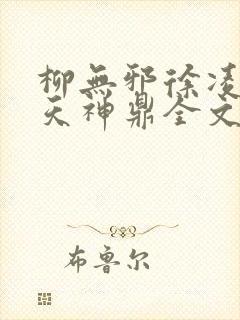 柳無邪徐凌
天神鼎全文
布鲁尔